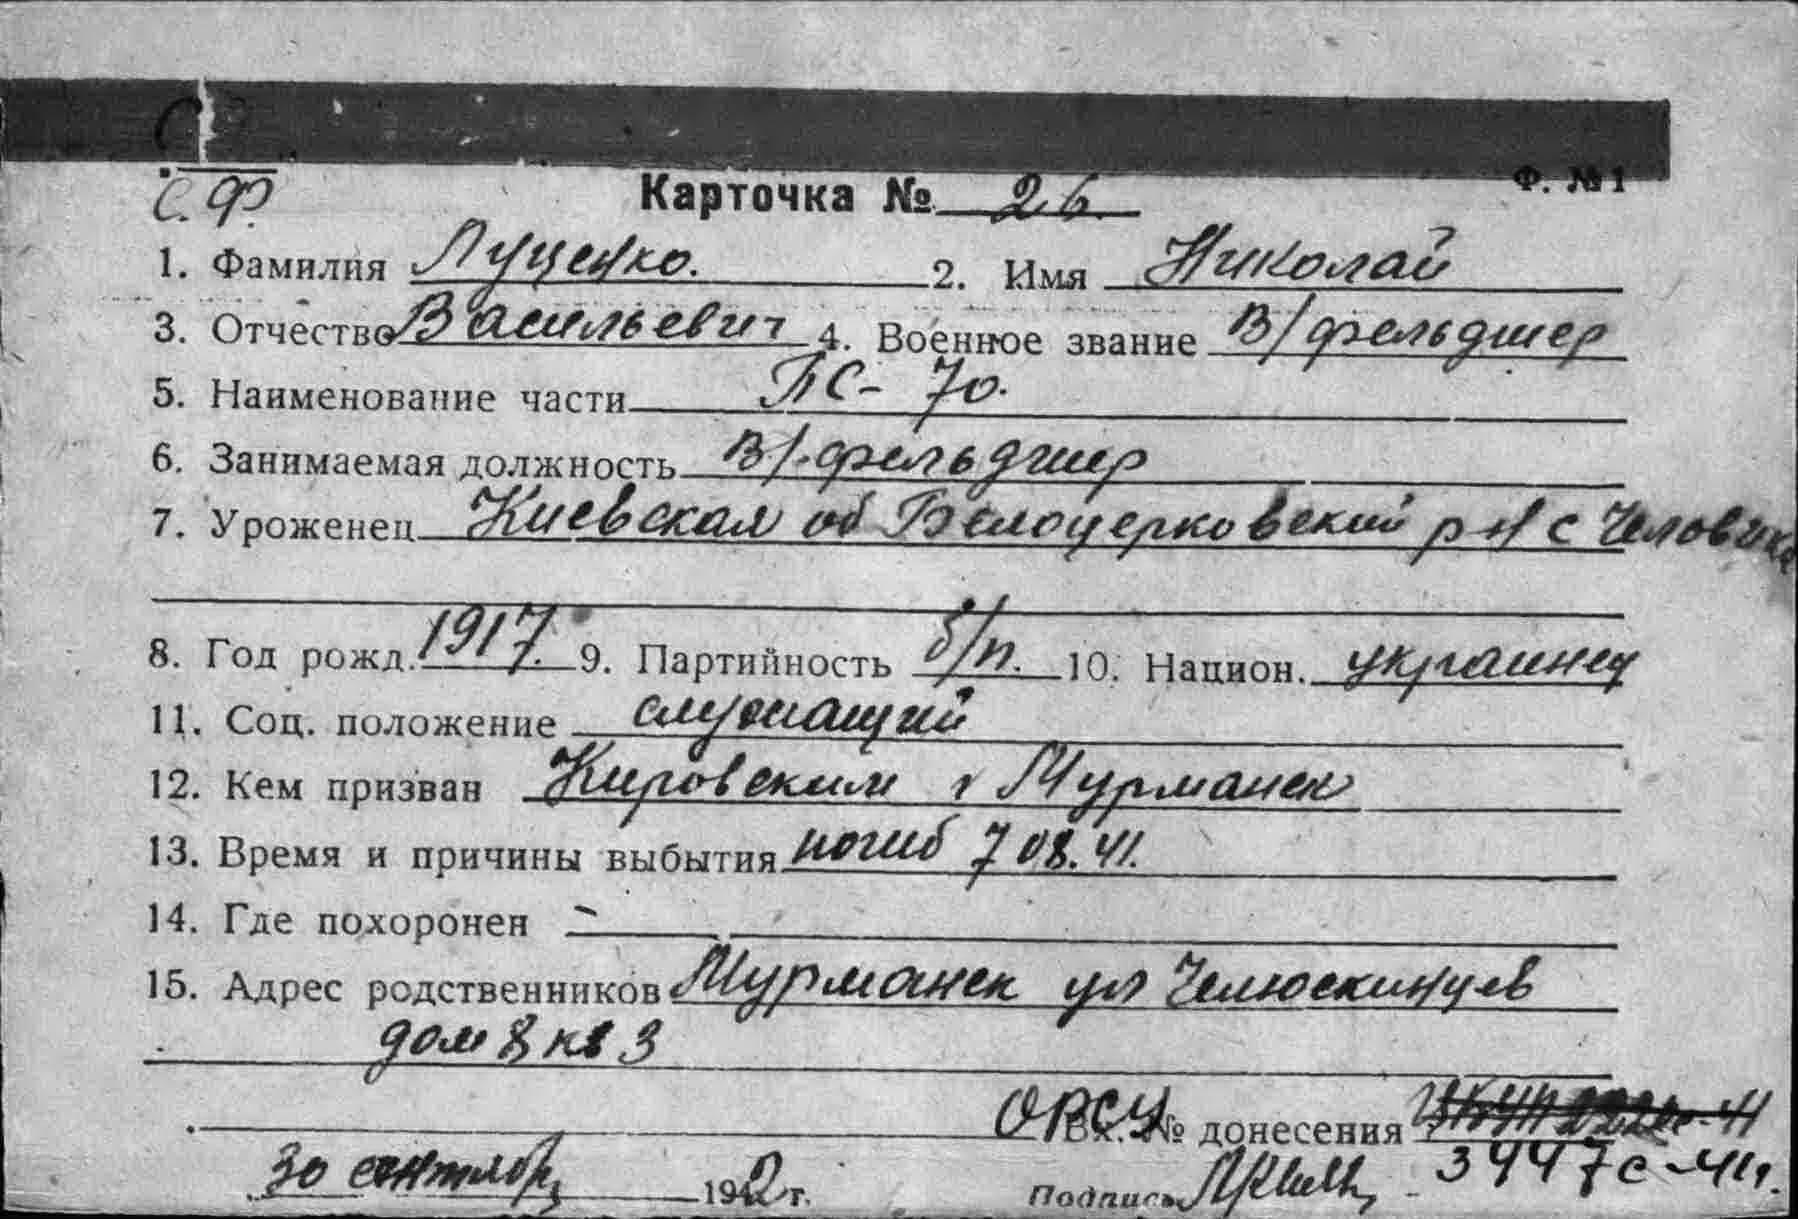 С.Ф. Ф. №1
Карточка № 26.
1. Фамилия Луценко. 2. Имя Николай
3. Отчество Васильевич 4. Военное звание В/фельдшер
5. Наименование части ПС- 70.
6. Занимаемая должность В/.фельдшер
7. Уроженец Киевская об Белоцерковский р-н с
8. Год рожд. 1917. 9. Партийность б/п. 10. Национ. украинец
11. Соц. положение служащий
12. Кем призван Кировским г Мурманск
13. Время и причины выбытия погиб 7 08. 41.
14. Где похоронен —
15. Адрес родственников Мурманск ул Челюскинцев
дом 8 кв 3
Вх. № донесения
30 сентябр 1942 г. Подпись 3447с-41г.